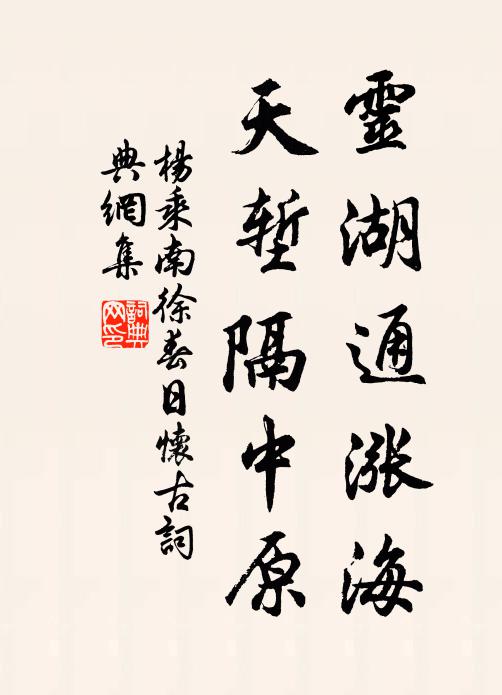 靈湖通漲海
天塹隔中原
楊乘南徐春日懷古詞
典網集
詞典
网印